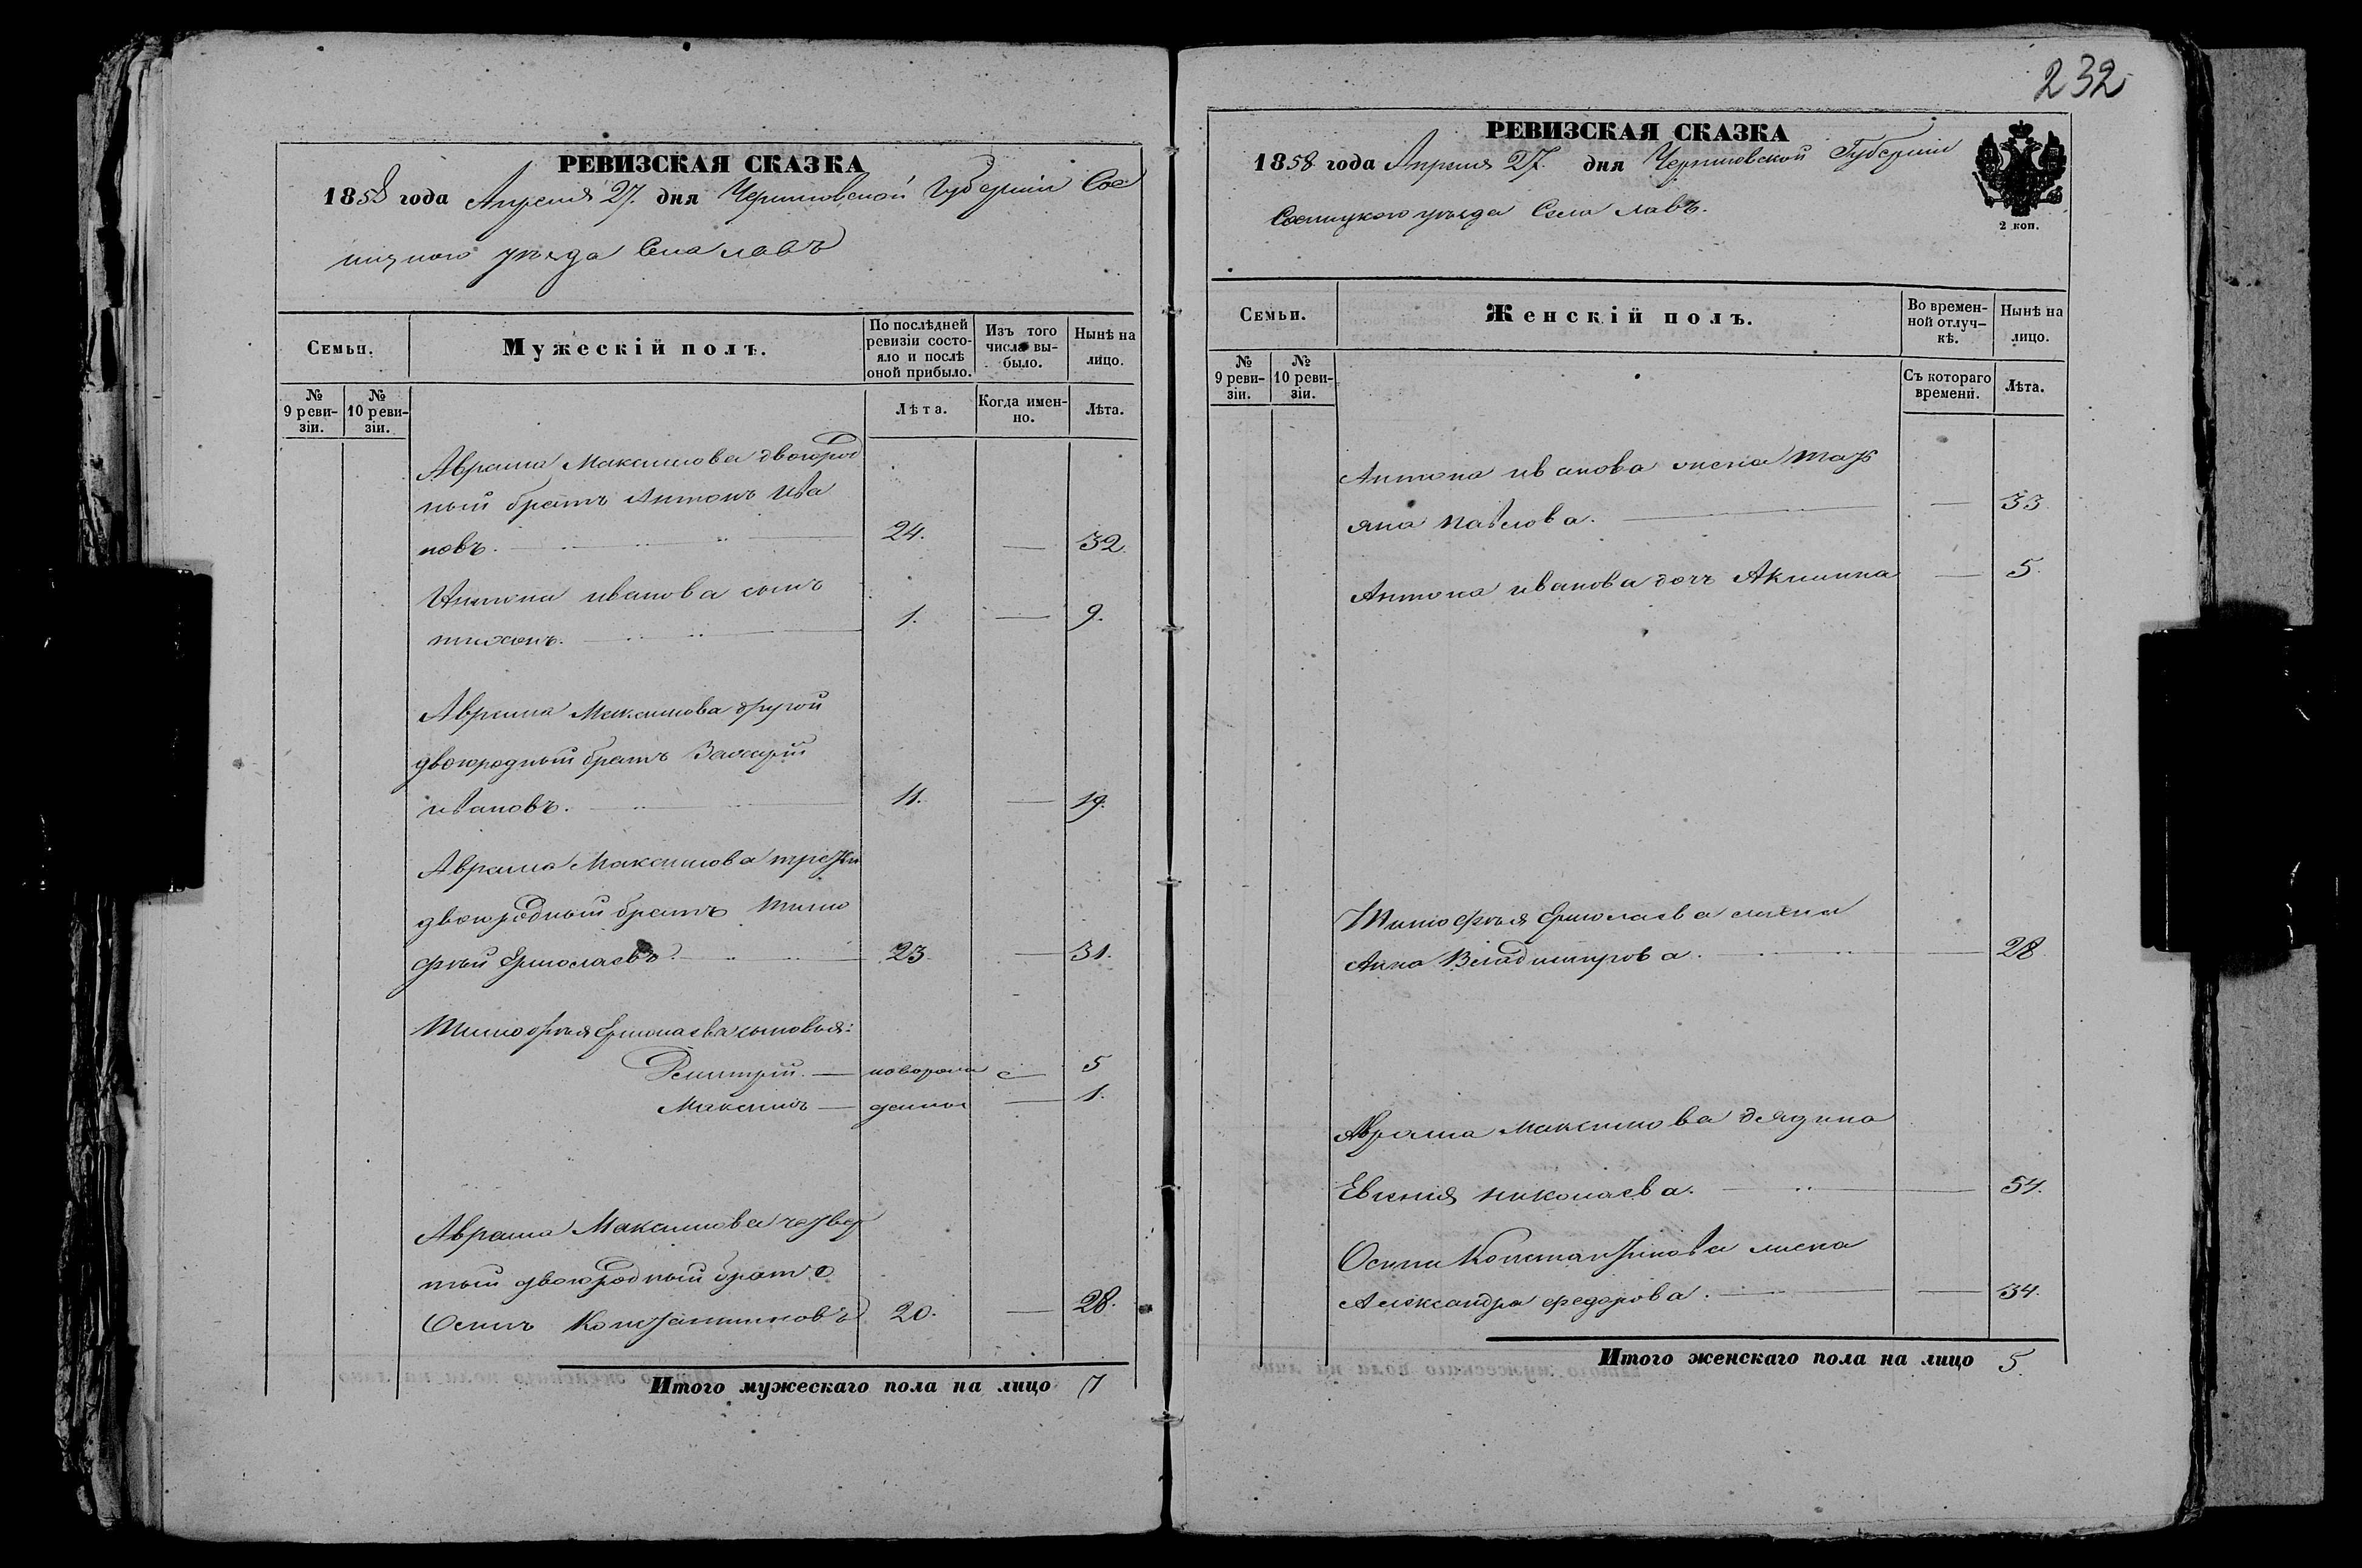 РЕВИЗСКАЯ СКАЗКА
1858 года Апреля 27. дня Черниговской Губернии Сос
ницкого уѣзда Села лавъ
Семьи.
Мужескій полъ.
По послѣдней ревизіи состояло и послѣ оной прибыло.
Изъ того числа выбыло.
Нынѣ на лицо.
№ 9 ревизіи.
№ 10 ревизіи.
Лѣта.
Когда именно.
Лѣта.
Аврама Максимова двоюрод
ный братъ Антонъ Ива
новъ. 24. — 32.
Антона иванова сынъ
тихонъ. 1. — 9.
Аврама Максимова другой
двоюродный братъ Захарій
ивановъ. 11. — 19.
Аврама Максимова третій
двоюродный братъ Тимо
фѣй Ермолаевъ. 23. — 31.
Тимофѣя Ермолаева сыновья:
Димитрій. — новорож — 5
Максимъ — денные — 1.
Аврама Максимова четвер
тый двоюродный братъ
Осипъ Константиновъ 20. — 28.
Итого мужескаго пола на лицо 7
232
РЕВИЗСКАЯ СКАЗКА
1858 года Апреля 27. дня Черниговской Губернии
Сосницкого уѣзда Села лавъ.
2 коп.
Семьи.
Женскій полъ.
Во временной отлучкѣ.
Нынѣ на лицо.
№ 9 ревизіи.
№ 10 ревизіи.
Съ котораго времени.
Лѣта.
Антона иванова жена тать
яна павлова. — 33
Антона иванова дочь Акилина — 5.
Тимофѣя Ермолаева жена
Анна Владимирова. — 28
Аврама Максимова дядина
Евгения николаева. — 54.
Осипа Константинова жена
Александра федорова. — 34.
Итого женскаго пола на лицо 5.